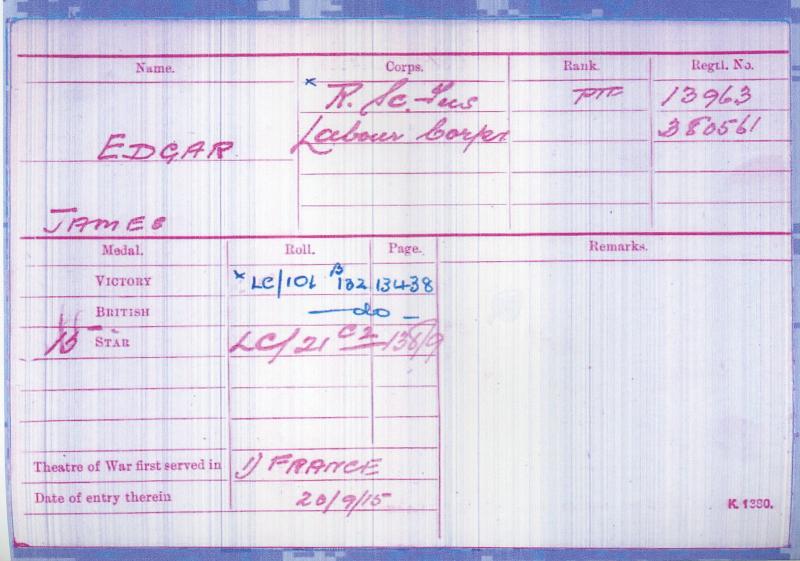 Name. Corps. Rank. Regtl. No.
× R. Sc. Fus PTE 13963
Labour Corps 380561
EDGAR
JAMES
Medal. Roll. Page. Remarks.
VICTORY × LC/101 B 132 13438
BRITISH —do—
15 STAR LC/21 C2
Theatre of War first served in 1) FRANCE
Date of entry therein 20/9/15
K. 1380.